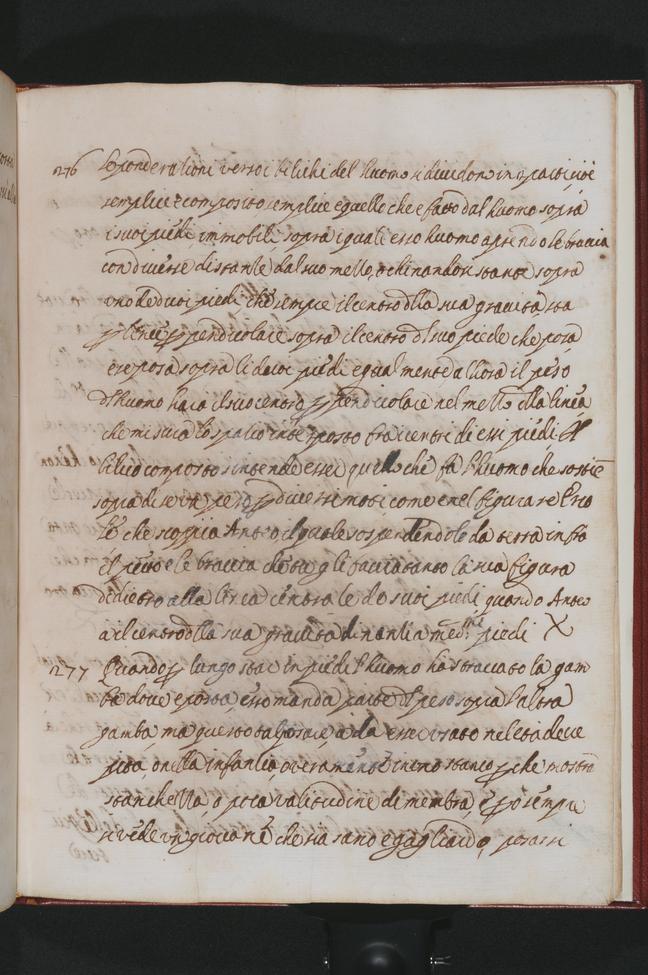 276 Le ponderationi verso i bilichi del huomo si dividono in 2 parti, cioè
semplice e composto semplice e quello che e fatto dal huomo sopra
i suoi piedi immobili sopra i quali esso huomo aprendo le braccia
con diverse distantie dal suo mezzo, o chinandosi stante sopra
uno de duoi piedi che sempre il centro dlla sua gravità sta
p linea ppendicolare sopra il centro dl suo piede che posa
e se posa sopra li dui piedi egualmente allora il peso
dl huomo hara il suo centro ppendicolare nel mezzo dlla linea
che misura lo spatio interposto fra i centri di essi piedi Il
bilico composto s'intende esser quello che fa l'huomo che sostie
sopra di se un peso p diversi moti come nel figurare Erco
le che scoppia Anteo il quale sospendendolo da terra infra
il petto e le braccia che tu gli facci tanto la sua figura
didietro alla linea centrale de suoi piedi quando Anteo
a il centro dlla sua gravità dinanti a med.mi piedi X
277 Quando p lungo star in piedi l'huomo ha straccato la gam
ba dove e posta, esso manda parte dl peso sopra l'altra
gamba, ma questo tal posare, a da esser usato nel'eta decre
pita, o nella infantia, o veramente in uno stanco, p che mostra
stanchezza, o poca valitudine di membra, e pò sempre
si vede un giovane che sia sano e gagliardo, posarsi